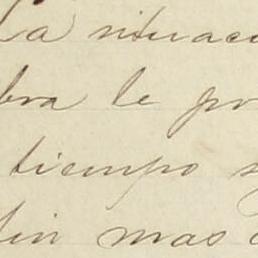 La situaci
bra le pr
tiempo s
fin mas